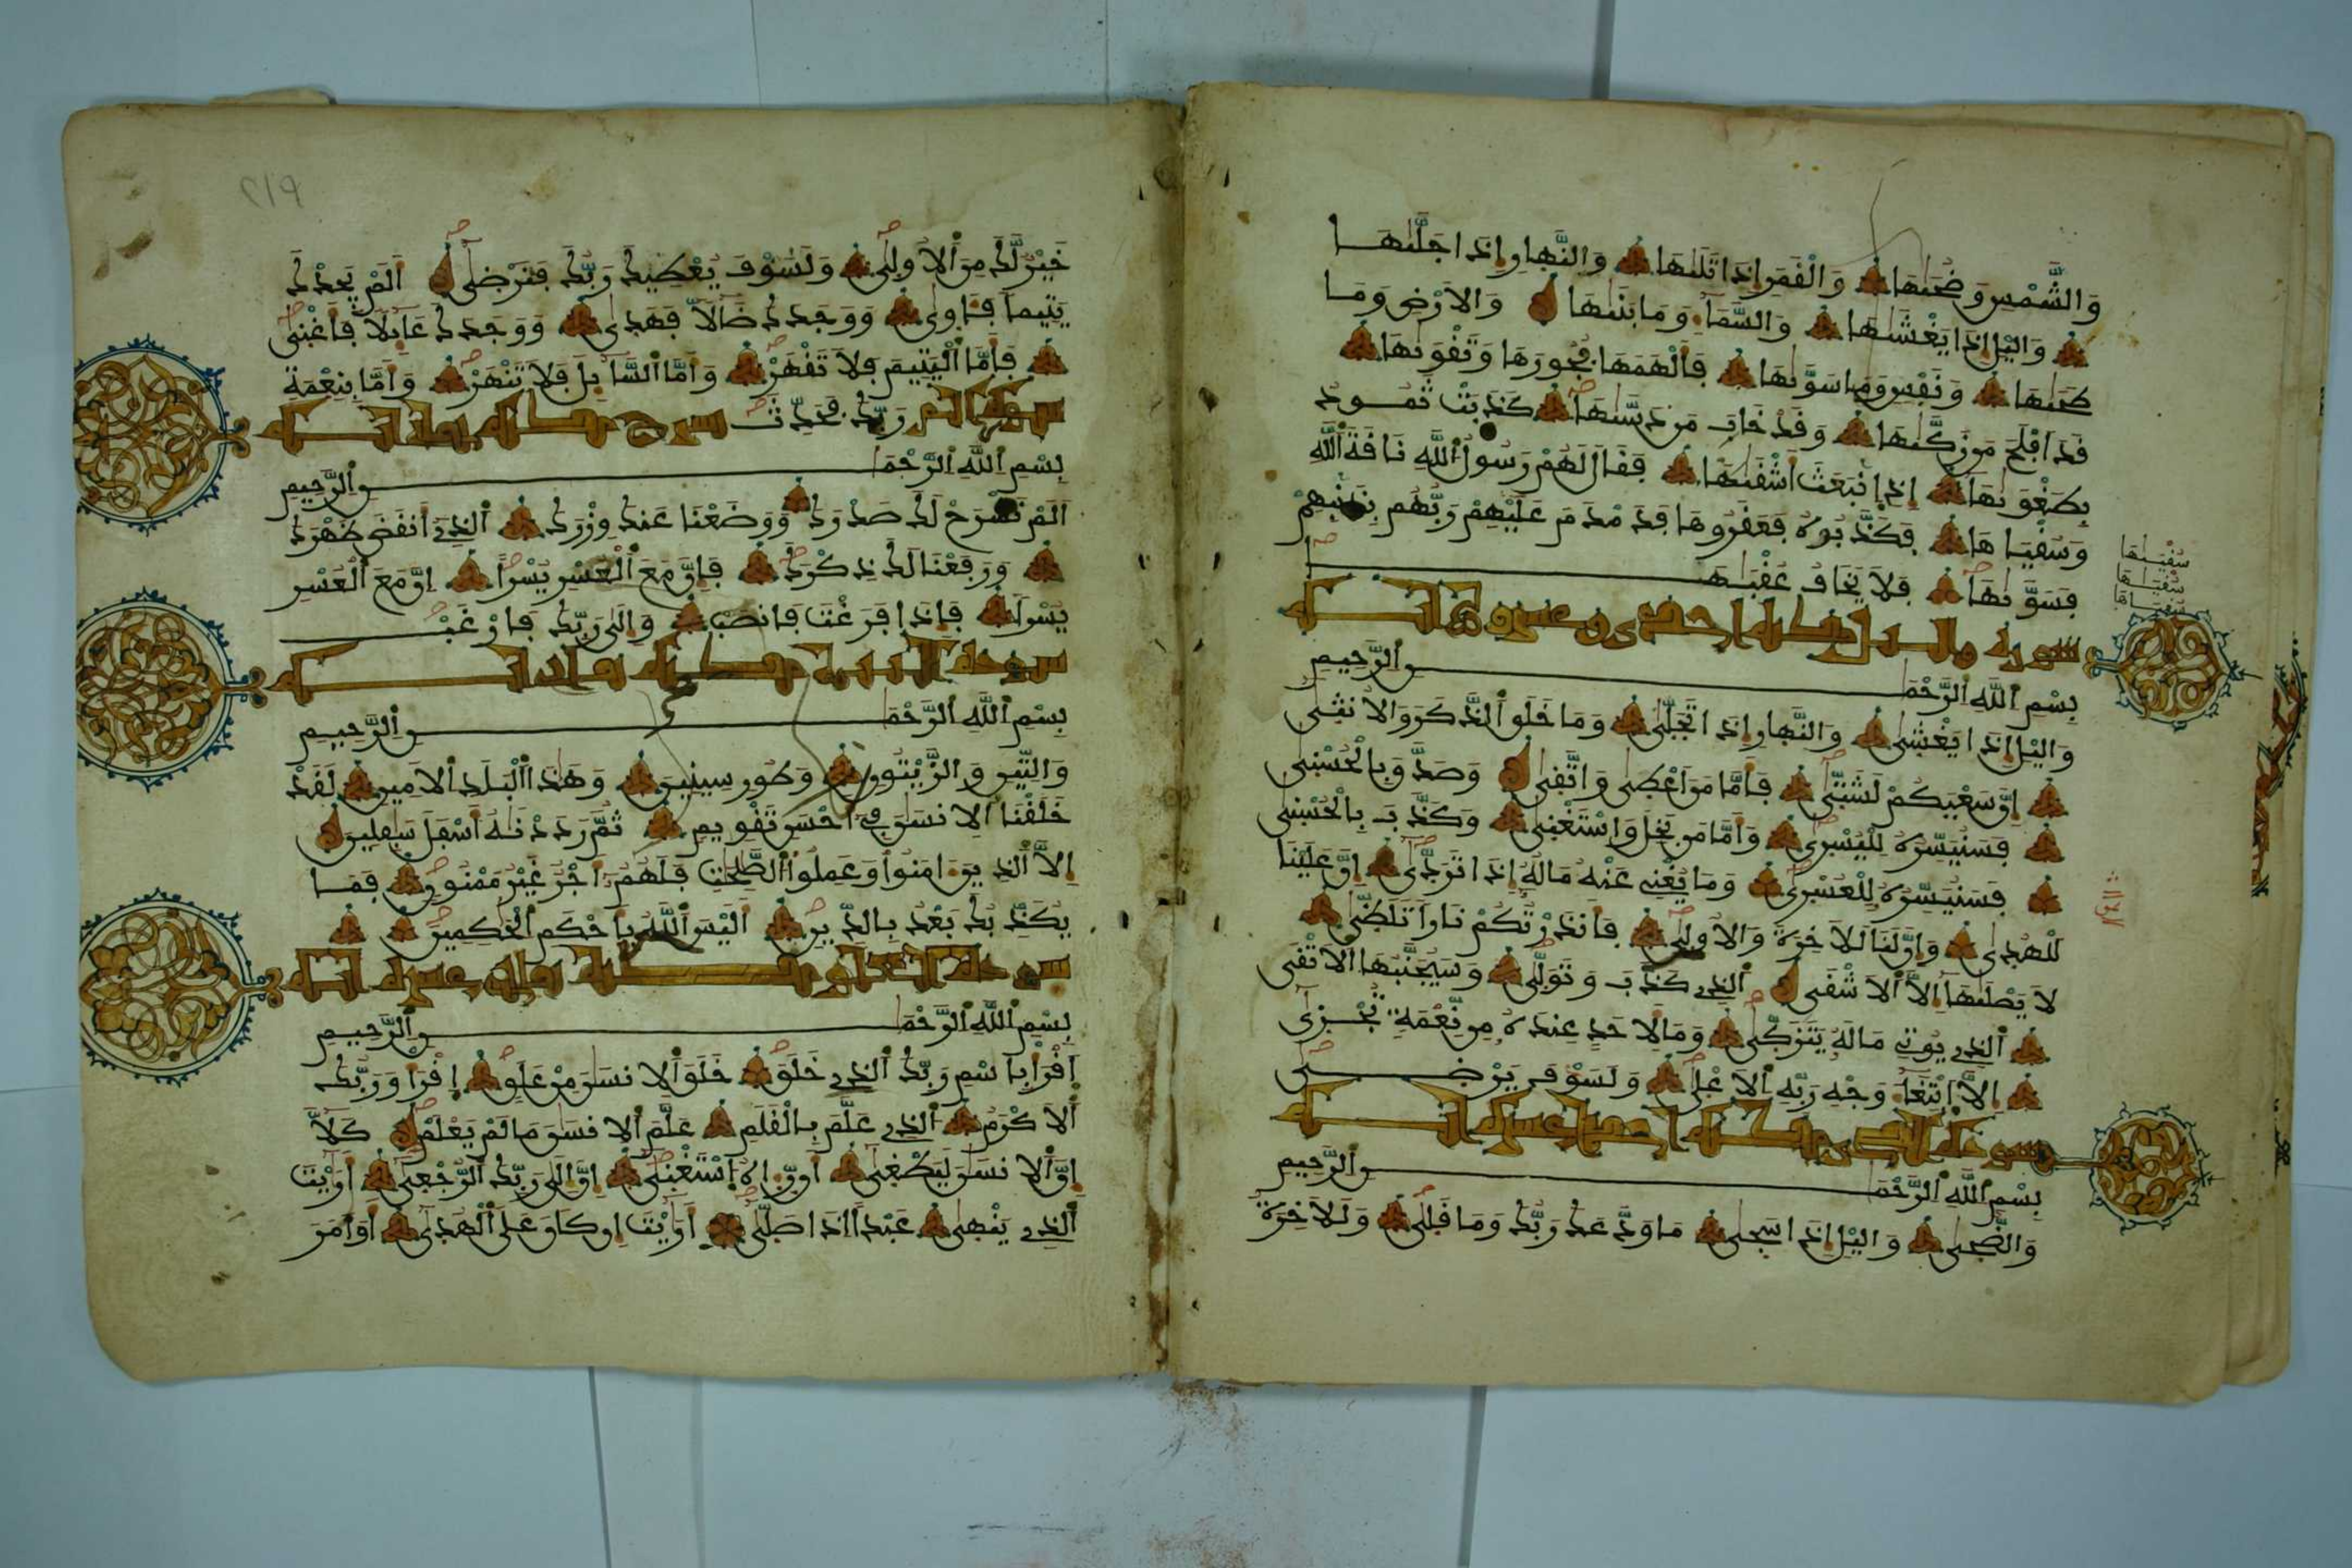 وَالشَّمْسِ وَضُحَىٰهَا وَالْقَمَرِ إِذَا تَلَىٰهَا وَالنَّهَارِ إِذَا جَلَّىٰهَا
وَالَّيْلِ إِذَا يَغْشَىٰهَا وَالسَّمَآءِ وَمَا بَنَىٰهَا وَالَارْضِ وَمَا
طَحَىٰهَا وَنَفْسٍ وَمَا سَوَّىٰهَا فَأَلْهَمَهَا فُجُورَهَا وَتَقْوَىٰهَا
قَدَ اَفْلَحَ مَن زَكَّىٰهَا وَقَدْ خَابَ مَن دَسَّىٰهَا كَذَّبَتْ ثَمُودُ
بِطَغْوَىٰهَا إِذِ اِنۢبَعَثَ أَشْقَىٰهَا فَقَالَ لَهُمْ رَسُولُ اُللَّهِ نَاقَةَ اَللَّهِ
وَسُقْيَاهَا فَكَذَّبُوهُ فَعَقَرُوهَا فَدَمْدَمَ عَلَيْهِمْ رَبُّهُم بِذَنۢبِهِمْ
فَسَوَّىٰهَا فَلَا يَخَافُ عُقْبَىٰهَا
سُقْيَـٰهَا
سُقْيَـٰهَا
سورة واليل مكية احدى وعشرون اية
بِسْمِ اِللَّهِ اِلرَّحْمَٰنِ اِلرَّحِيمِ
وَالَّيْلِ إِذَا يَغْشَىٰ وَالنَّهَارِ إِذَا تَجَلَّىٰ وَمَا خَلَقَ اَلذَّكَرَ وَالُانثَىٰ
إِنَّ سَعْيَكُمْ لَشَتَّىٰ فَأَمَّا مَنَ اَعْطَىٰ وَاتَّقَىٰ وَصَدَّقَ بِالْحُسْنَىٰ
فَسَنُيَسِّرُهُ لِلْيُسْرَىٰ وَأَمَّا مَنۢ بَخِلَ وَاسْتَغْنَىٰ وَكَذَّبَ بِالْحُسْنَىٰ
فَسَنُيَسِّرُهُ لِلْعُسْرَىٰ وَمَا يُغْنِى عَنْهُ مَالُهُ إِذَا تَرَدَّىٰ إِنَّ عَلَيْنَا
لَلْهُدَىٰ وَإِنَّ لَنَا لَلَاخِرَةَ وَالُاولَىٰ فَأَنذَرْتُكُمْ نَاراً تَلَظَّىٰ
لَا يَصْلَىٰهَا إِلَّا اَلَاشْقَى اَلذِى كَذَّبَ وَتَوَلَّىٰ وَسَيُجَنَّبُهَا اَلَاتْقَى
اَلذِى يُوتِى مَالَهُ يَتَزَكَّىٰ وَمَا لِأَحَدٍ عِندَهُ مِن نِّعْمَةٍ تُجْزَىٰ
إِلَّا اَبْتِغَآءَ وَجْهِ رَبِّهِ اِلَاعْلَىٰ وَلَسَوْفَ يَرْضَىٰ
سورة الضحى مكية احدى عشرة اية
بِسْمِ اِللَّهِ اِلرَّحْمَٰنِ اِلرَّحِيمِ
وَالضُّحَىٰ وَالَّيْلِ إِذَا سَجَىٰ مَا وَدَّعَكَ رَبُّكَ وَمَا قَلَىٰ وَلَلَاخِرَةُ
٢١٩
خَيْرٌ لَّكَ مِنَ اَلُاولَىٰ وَلَسَوْفَ يُعْطِيكَ رَبُّكَ فَتَرْضَىٰ أَلَمْ يَجِدْكَ
يَتِيماً فَـَٔاوَىٰ وَوَجَدَكَ ضَآلّاً فَهَدَىٰ وَوَجَدَكَ عَآئِلاً فَأَغْنَىٰ
فَأَمَّا اَلْيَتِيمَ فَلَا تَقْهَرْ وَأَمَّا اَلسَّآئِلَ فَلَا تَنْهَرْ وَأَمَّا بِنِعْمَةِ
رَبِّكَ فَحَدِّثْ سورة الم نشرح مكية ثماني اية
بِسْمِ اِللَّهِ اِلرَّحْمَٰنِ اِلرَّحِيمِ
أَلَمْ نَشْرَحْ لَكَ صَدْرَكَ وَوَضَعْنَا عَنكَ وِزْرَكَ اَلذِى أَنقَضَ ظَهْرَكَ
وَرَفَعْنَا لَكَ ذِكْرَكَ فَإِنَّ مَعَ اَلْعُسْرِ يُسْراً اِنَّ مَعَ اَلْعُسْرِ
يُسْراً فَإِذَا فَرَغْتَ فَانصَبْ وَإِلَىٰ رَبِّكَ فَارْغَبْ
سورة التين مكية ثمان اية
بِسْمِ اِللَّهِ اِلرَّحْمَٰنِ اِلرَّحِيمِ
وَالتِّينِ وَالزَّيْتُونِ وَطُورِ سِينِينَ وَهَٰذَا اَلْبَلَدِ اِلَامِينِ لَقَدْ
خَلَقْنَا اَلِانسَٰنَ فِى أَحْسَنِ تَقْوِيمٍ ثُمَّ رَدَدْنَٰهُ أَسْفَلَ سَٰفِلِينَ
إِلَّا اَلذِينَ ءَامَنُوا وَعَمِلُوا اُلصَّٰلِحَٰتِ فَلَهُمُ أَجْرٌ غَيْرُ مَمْنُونٍ فَمَا
يُكَذِّبُكَ بَعْدُ بِالدِّينِ أَلَيْسَ اَللَّهُ بِأَحْكَمِ اِلْحَٰكِمِينَ
سورة العلق مكية عشرون اية
بِسْمِ اِللَّهِ اِلرَّحْمَٰنِ اِلرَّحِيمِ
اَقْرَأْ بِاسْمِ رَبِّكَ اَلذِى خَلَقَ خَلَقَ اَلِانسَٰنَ مِنْ عَلَقٍ اِقْرَأْ وَرَبُّكَ
اَلَاكْرَمُ اُلذِى عَلَّمَ بِالْقَلَمِ عَلَّمَ اَلِانسَٰنَ مَا لَمْ يَعْلَمْ كَلَّا
إِنَّ اَلِانسَٰنَ لَيَطْغَىٰ أَن رَّءَاهُ اُسْتَغْنَىٰ إِنَّ إِلَىٰ رَبِّكَ اَلرُّجْعَىٰ أَرَٰيْتَ
اَلذِى يَنْهَىٰ عَبْداً اِذَا صَلَّىٰ أَرَٰيْتَ إِن كَانَ عَلَى اَلْهُدَىٰ أَوَ اَمَرَ